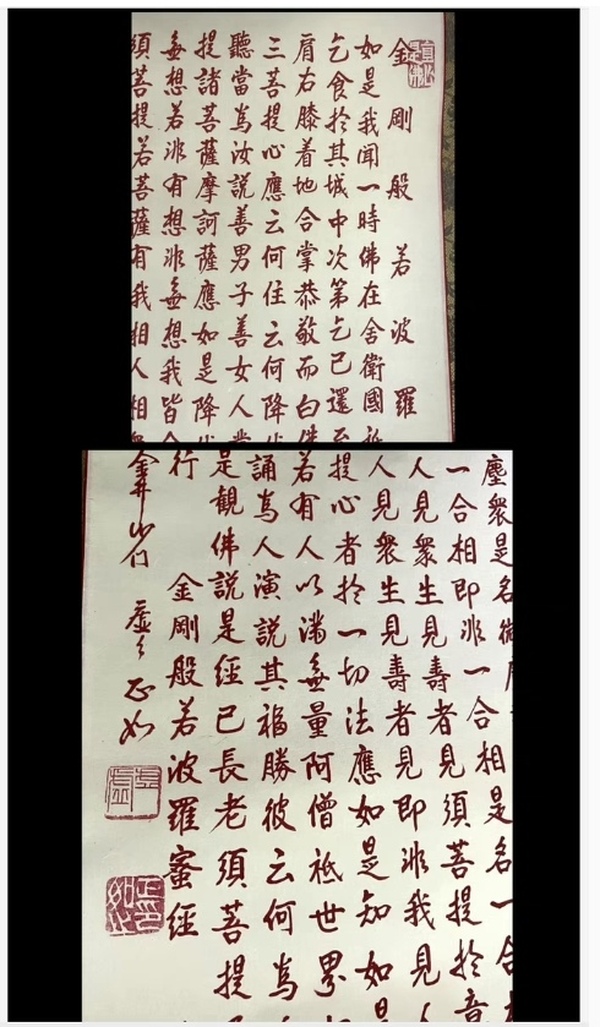 直心是佛
金剛般若波羅
如是我聞一時佛在舍衛國祇
乞食於其城中次第乞已還至
肩右膝着地合掌恭敬而白佛
三菩提心應云何住云何降伏
聽當為汝說善男子善女人發
提諸菩薩摩訶薩應如是降伏
無想若非有想非無想我皆令
須菩提若菩薩有我相人相衆
塵衆是名微
一合相即非一合相是名一合相
人見衆生見壽者見須菩提於意
人見衆生見壽者見即非我見人
提心者於一切法應如是知如是
若有人以滿無量阿僧祇世界
誦為人演說其福勝彼云何為
是觀佛說是經已長老須菩提
行
金剛般若波羅蜜經
正如